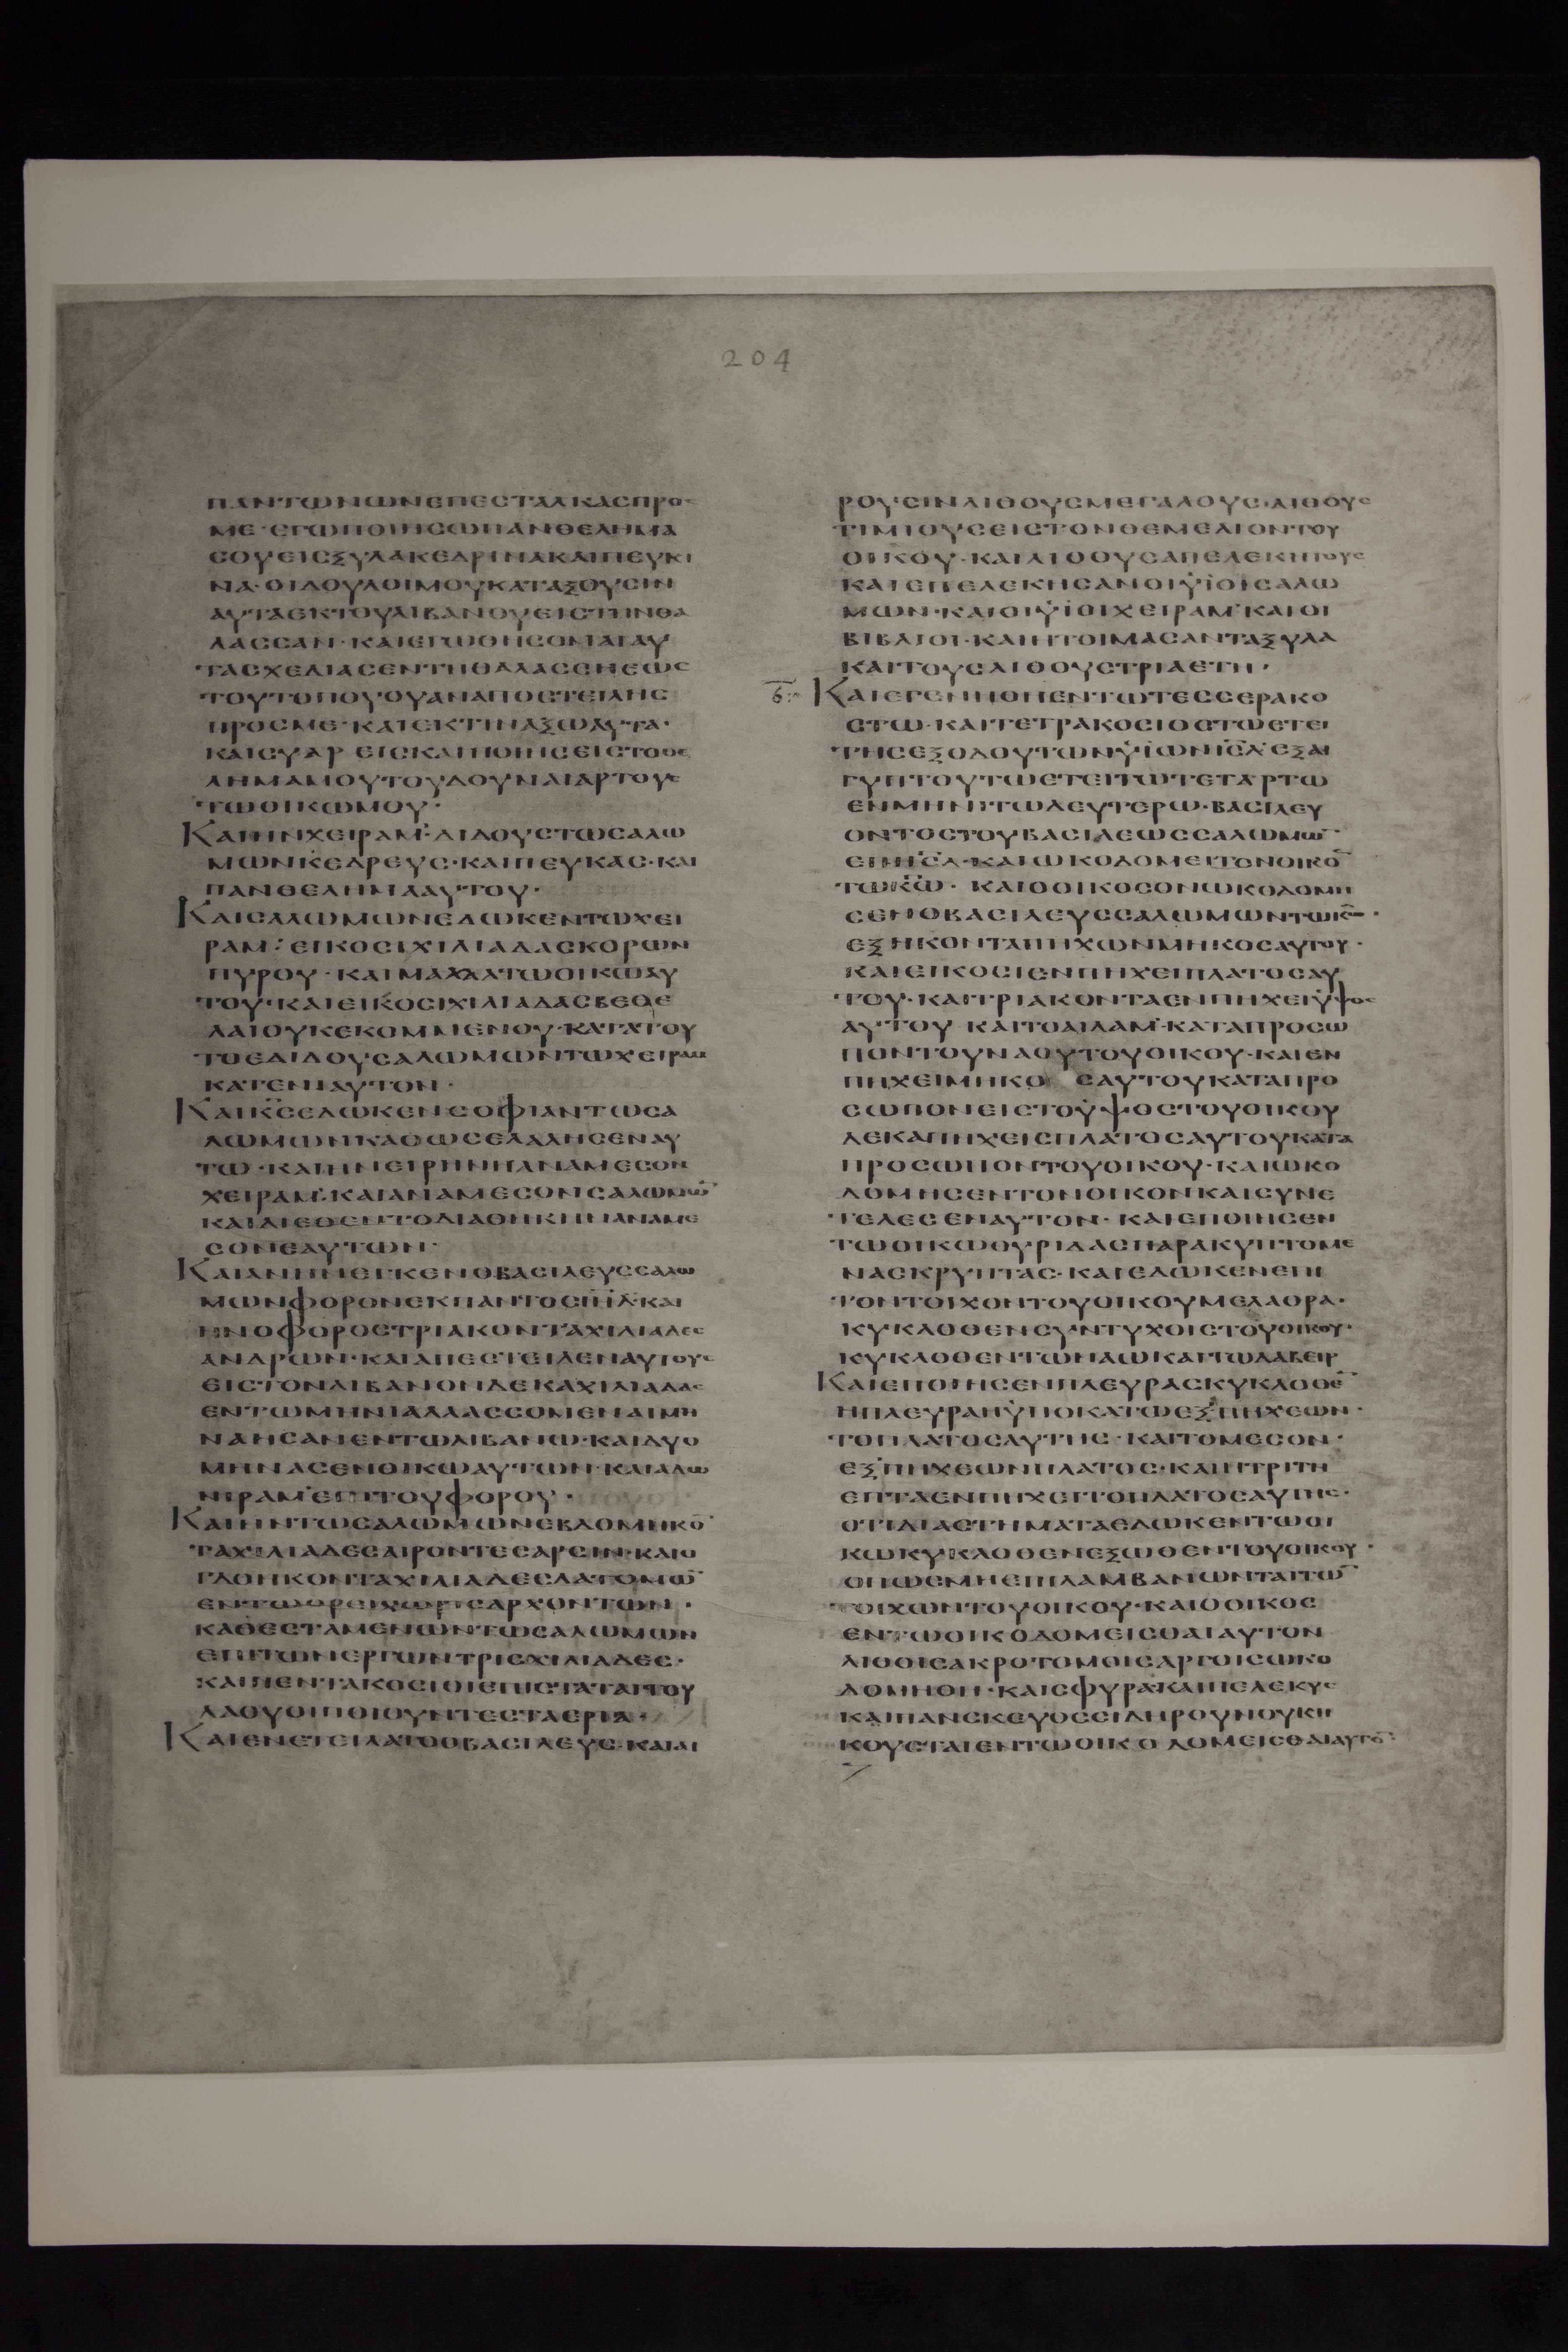 204
ΠΑΝΤΩΝΩΝΕΠΕСΤΑΛΚΑСΠΡΟС
ΜΕ·ΕΓΩΠΟΙΗСΩΠΑΝΘΕΛΗΜΑ
СΟΥΕΙСΞΥΛΑΚΕΔΡΙΝΑΚΑΙΠΕΥΚΙ
ΝΑ·ΟΙΔΟΥΛΟΙΜΟΥΚΑΤΑΞΟΥСΙΝ
ΑΥΤΑΕΚΤΟΥΛΙΒΑΝΟΥΕΙСΤΗΝΘΑ
ΛΑССΑΝ·ΚΑΙΕΓΩΘΗСΟΜΑΙΑΥ
ΤΑСΧΕΔΙΑСΕΝΤΗΘΑΛΑССΗΕΩС
ΤΟΥΤΟΠΟΥΟΥΑΝΑΠΟСΤΕΙΛΗС
ΠΡΟСΜΕ·ΚΑΙΕΚΤΙΝΑΞΩΑΥΤΑ·
ΚΑΙСΥΑΡΕΙСΚΑΙΠΟΙΗСΕΙСΤΟΘΕ
ΛΗΜΑΜΟΥΤΟΥΔΟΥΝΑΙΑΡΤΟΥС
ΤΩΟΙΚΩΜΟΥ·
ΚΑΙΗΝΧΕΙΡΑΜ·ΔΙΔΟΥСΤΩСΑΛΩ
ΜΩΝΚΕΔΡΕΥС·ΚΑΙΠΕΥΚΑС·ΚΑΙ
ΠΑΝΘΕΛΗΜΑΑΥΤΟΥ·
ΚΑΙСΑΛΩΜΩΝΕΔΩΚΕΝΤΩΧΕΙ
ΡΑΜ·ΕΙΚΟСΙΧΙΛΙΑΔΑСΚΟΡΩΝ
ΠΥΡΟΥ·ΚΑΙΜΑΧΑΛΑΤΩΟΙΚΩΑΥ
ΤΟΥ·ΚΑΙΕΙΚΟСΙΧΙΛΙΑΔΑСΒΕΘΕ
ΛΑΙΟΥΚΕΚΟΜΜΕΝΟΥ·ΚΑΤΑΤΟΥ
ΤΟΕΔΙΔΟΥСΑΛΩΜΩΝΤΩΧΕΙΡΑΜ
ΚΑΤΕΝΙΑΥΤΟΝ·
ΚΑΙΚ̅С̅ΕΔΩΚΕΝСΟΦΙΑΝΤΩСΑ
ΛΩΜΩΝΚΑΘΩСΕΛΑΛΗСΕΝΑΥ
ΤΩ·ΚΑΙΗΝΕΙΡΗΝΗΑΝΑΜΕСΟΝ
ΧΕΙΡΑΜ·ΚΑΙΑΝΑΜΕСΟΝСΑΛΩΜΩ̅
ΚΑΙΔΙΕΘΕΝΤΟΔΙΑΘΗΚΗΝΑΝΑΜΕ
СΟΝΕΑΥΤΩΝ·
ΚΑΙΑΝΗΝΕΓΚΕΝΟΒΑСΙΛΕΥССΑΛΩ
ΜΩΝΦΟΡΟΝΕΚΠΑΝΤΟСΙ̅Η̅Λ̅·ΚΑΙ
ΗΝΟΦΟΡΟСΤΡΙΑΚΟΝΤΑΧΙΛΙΑΔΕС
ΑΝΔΡΩΝ·ΚΑΙΑΠΕСΤΕΙΛΕΝΑΥΤΟΥС
ΕΙСΤΟΝΛΙΒΑΝΟΝΔΕΚΑΧΙΛΙΑΔΑС
ΕΝΤΩΜΗΝΙΑΛΛΑССΟΜΕΝΑΙΜΗ
ΝΑΗСΑΝΕΝΤΩΛΙΒΑΝΩ·ΚΑΙΔΥΟ
ΜΗΝΑСΕΝΟΙΚΩΑΥΤΩΝ·ΚΑΙΑΔΩ
ΝΙΡΑΜΕΠΙΤΟΥΦΟΡΟΥ·
ΚΑΙΗΝΤΩСΑΛΩΜΩΝΕΒΔΟΜΗΚΟ̅
ΤΑΧΙΛΙΑΔΕСΑΙΡΟΝΤΕСΑΡСΙΝ·ΚΑΙΟ
ΓΔΟΗΚΟΝΤΑΧΙΛΙΑΔΕСΛΑΤΟΜΩ̅
ΕΝΤΩΟΡΕΙΧΩΡΙСΑΡΧΟΝΤΩΝ·
ΚΑΘΕСΤΑΜΕΝΩΝΤΩСΑΛΩΜΩΝ
ΕΠΙΤΩΝΕΡΓΩΝΤΡΙСΧΙΛΙΑΔΕС·
ΚΑΙΠΕΝΤΑΚΟСΙΟΙΕΠΙСΤΑΤΑΙΤΟΥ
ΛΑΟΥΟΙΠΟΙΟΥΝΤΕСΤΑΕΡΓΑ·
ΚΑΙΕΝΕΤΕΙΛΑΤΟΟΒΑСΙΛΕΥС·ΚΑΙΑΙ
ΡΟΥСΙΝΛΙΘΟΥСΜΕΓΑΛΟΥС·ΛΙΘΟΥС
ΤΙΜΙΟΥСΕΙСΤΟΝΘΕΜΕΛΙΟΝΤΟΥ
ΟΙΚΟΥ·ΚΑΙΛΙΘΟΥСΑΠΕΛΕΚΗΤΟΥС
ΚΑΙΕΠΕΛΕΚΗСΑΝΟΙΫΙΟΙСΑΛΩ
ΜΩΝ·ΚΑΙΟΙΫΙΟΙΧΕΙΡΑΜ·ΚΑΙΟΙ
ΒΙΒΛΙΟΙ·ΚΑΙΗΤΟΙΜΑСΑΝΤΑΞΥΛΑ
ΚΑΙΤΟΥСΛΙΘΟΥСΤΡΙΑΕΤΗ·
ΚΑΙΕΓΕΝΗΘΗΕΝΤΩΤΕССΕΡΑΚΟ
СΤΩ·ΚΑΙΤΕΤΡΑΚΟСΙΟСΤΩΕΤΕΙ
ΤΗСΕΞΟΔΟΥΤΩΝΫΙΩΝΙ̅С̅Λ̅ΕΞΑΙ
ΓΥΠΤΟΥΤΩΕΤΕΙΤΩΤΕΤΑΡΤΩ
ΕΝΜΗΝΙΤΩΔΕΥΤΕΡΩ·ΒΑСΙΛΕΥ
ΟΝΤΟСΤΟΥΒΑСΙΛΕΩССΑΛΩΜΩ̅·
ΕΠΙΙ̅С̅Λ̅·ΚΑΙΩΚΟΔΟΜΕΙΤΟΝΟΙΚΟ̅
ΤΩΚ̅Ω̅·ΚΑΙΟΟΙΚΟСΟΝΩΚΟΔΟΜΗ
СΕΝΟΒΑСΙΛΕΥССΑΛΩΜΩΝΤΩΚ̅Ω̅·
ΕΞΗΚΟΝΤΑΠΗΧΩΝΜΗΚΟСΑΥΤΟΥ·
ΚΑΙΕΙΚΟСΙΕΝΠΗΧΕΙΠΛΑΤΟСΑΥ
ΤΟΥ·ΚΑΙΤΡΙΑΚΟΝΤΑΕΝΠΗΧΕΙΫΨΟС
ΑΥΤΟΥΚΑΙΤΟΑΙΛΑΜ·ΚΑΤΑΠΡΟСΩ
ΠΟΝΤΟΥΝΑΟΥΤΟΥΟΙΚΟΥ·ΚΑΙΕΝ
ΠΗΧΕΙΜΗΚΟ СΑΥΤΟΥΚΑΤΑΠΡΟ
СΩΠΟΝΕΙСΤΟΫΨΟСΤΟΥΟΙΚΟΥ
ΔΕΚΑΠΗΧΕΙСΠΛΑΤΟСΑΥΤΟΥΚΑΤΑ
ΠΡΟСΩΠΟΝΤΟΥΟΙΚΟΥ·ΚΑΙΩΚΟ
ΔΟΜΗСΕΝΤΟΝΟΙΚΟΝΚΑΙСΥΝΕ
ΤΕΛΕСΕΝΑΥΤΟΝ·ΚΑΙΕΠΟΙΗСΕΝ
ΤΩΟΙΚΩΘΥΡΙΔΑСΠΑΡΑΚΥΠΤΟΜΕ
ΝΑСΚΡΥΠΤΑС·ΚΑΙΕΔΩΚΕΝΕΠΙ
ΤΟΝΤΟΙΧΟΝΤΟΥΟΙΚΟΥΜΕΛΑΘΡΑ·
ΚΥΚΛΟΘΕΝСΥΝΤΥΧΟΙСΤΟΥΟΙΚΟΥ·
ΚΥΚΛΟΘΕΝΤΩΝΑΩΚΑΙΤΩΔΑΒΕΙΡ
ΚΑΙΕΠΟΙΗСΕΝΠΛΕΥΡΑСΚΥΚΛΟΘΕ̅
ΗΠΛΕΥΡΑΗΫΠΟΚΑΤΩΕΞΠΗΧΕΩΝ·
ΤΟΠΛΑΤΟСΑΥΤΗС·ΚΑΙΤΟΜΕСΟΝ·
ΕΞΠΗΧΕΩΝΠΛΑΤΟС·ΚΑΙΗΤΡΙΤΗ
ΕΠΤΑΕΝΠΗΧΕΙΤΟΠΛΑΤΟСΑΥΤΗС·
ΟΤΙΔΙΑСΤΗΜΑΤΑΕΔΩΚΕΝΤΩΟΙ
ΚΩΚΥΚΛΟΘΕΝΕΞΩΘΕΝΤΟΥΟΙΚΟΥ·
ΟΠΩСΜΗΕΠΙΛΑΜΒΑΝΩΝΤΑΙΤΩ̅
ΤΟΙΧΩΝΤΟΥΟΙΚΟΥ·ΚΑΙΟΟΙΚΟС
ΕΝΤΩΟΙΚΟΔΟΜΕΙСΘΑΙΑΥΤΟΝ
ΛΙΘΟΙСΑΚΡΟΤΟΜΟΙСΑΡΓΟΙСΩΚΟ
ΔΟΜΗΘΗ·ΚΑΙСΦΥΡΑ·ΚΑΙΠΕΛΕΚΥС
ΚΑΙΠΑΝСΚΕΥΟССΙΔΗΡΟΥΝΟΥΚΗ
ΚΟΥСΤΑΙΕΝΤΩΟΙΚΟΔΟΜΕΙСΘΑΙΑΥΤΟ̅